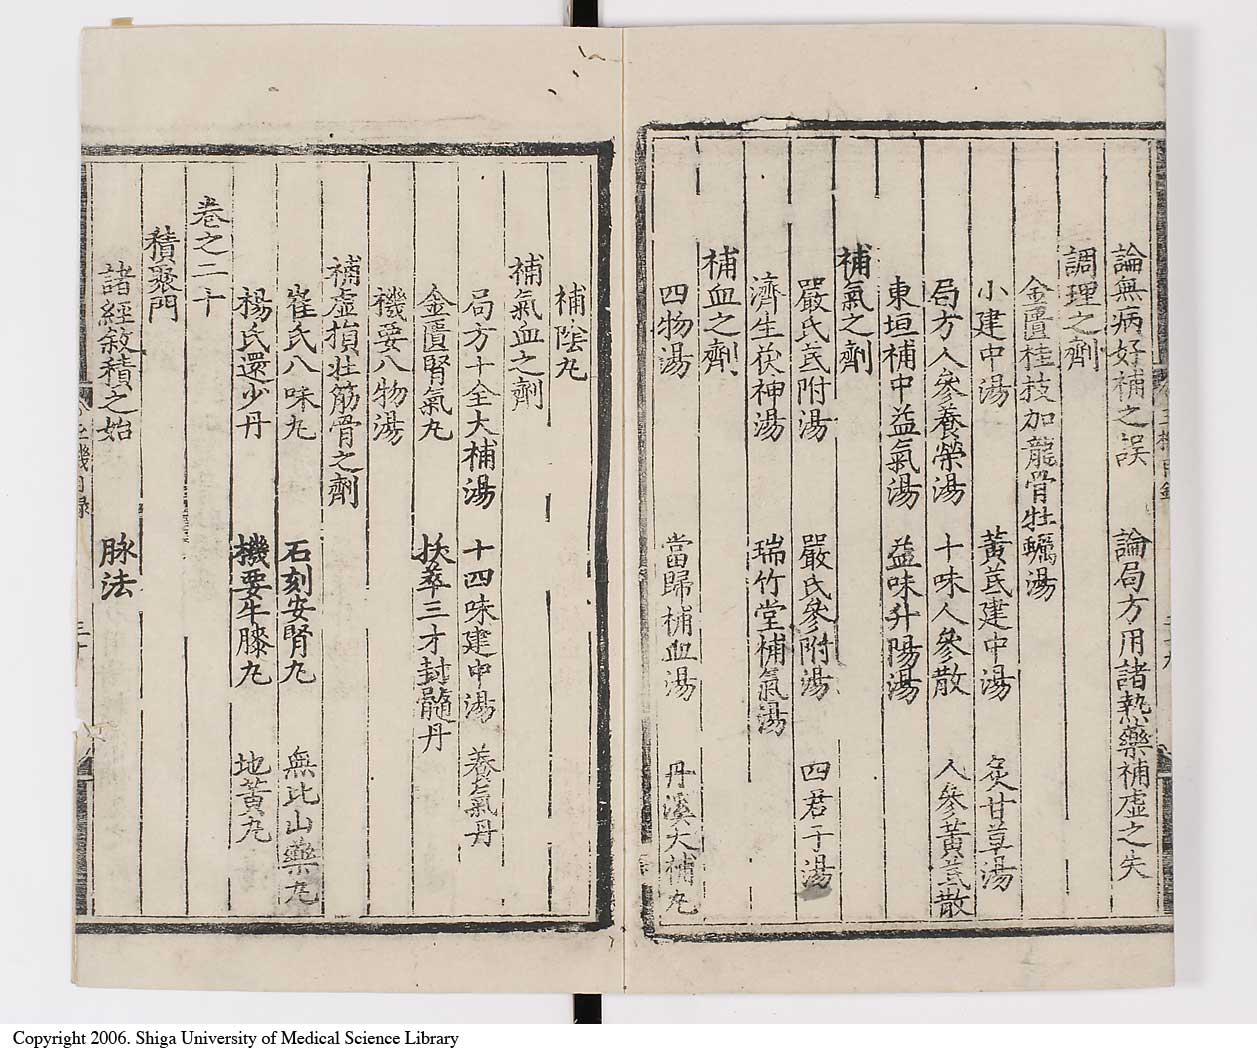 論無病好補之誤　論局方用諸熱藥補虛之失
調理之劑
金匱桂技加龍骨牡蠣湯
小建中湯　黃芪建中湯　炙甘草湯
局方人參養榮湯　十味人參散　人參黃芪散
東垣補中益氣湯　益味升陽湯
補氣之劑
嚴氏芪附湯　嚴氏參附湯　四君子湯
濟生茯神湯　瑞竹堂補氣湯
補血之劑
四物湯　當歸補血湯　丹溪大補丸
補陰丸
補氣血之劑
局方十全大補湯　十四味建中湯　養氣丹
金匱腎氣丸　扶萃三才封髓丹
機要八物湯
補虛損壯筋骨之劑
崔氏八味丸　石刻安腎丸　無比山藥丸
楊氏還少丹　機要牛膝丸　地黃丸
卷之二十
積聚門
諸經敘積之始　脉法
Copyright 2006. Shiga University of Medical Science Library